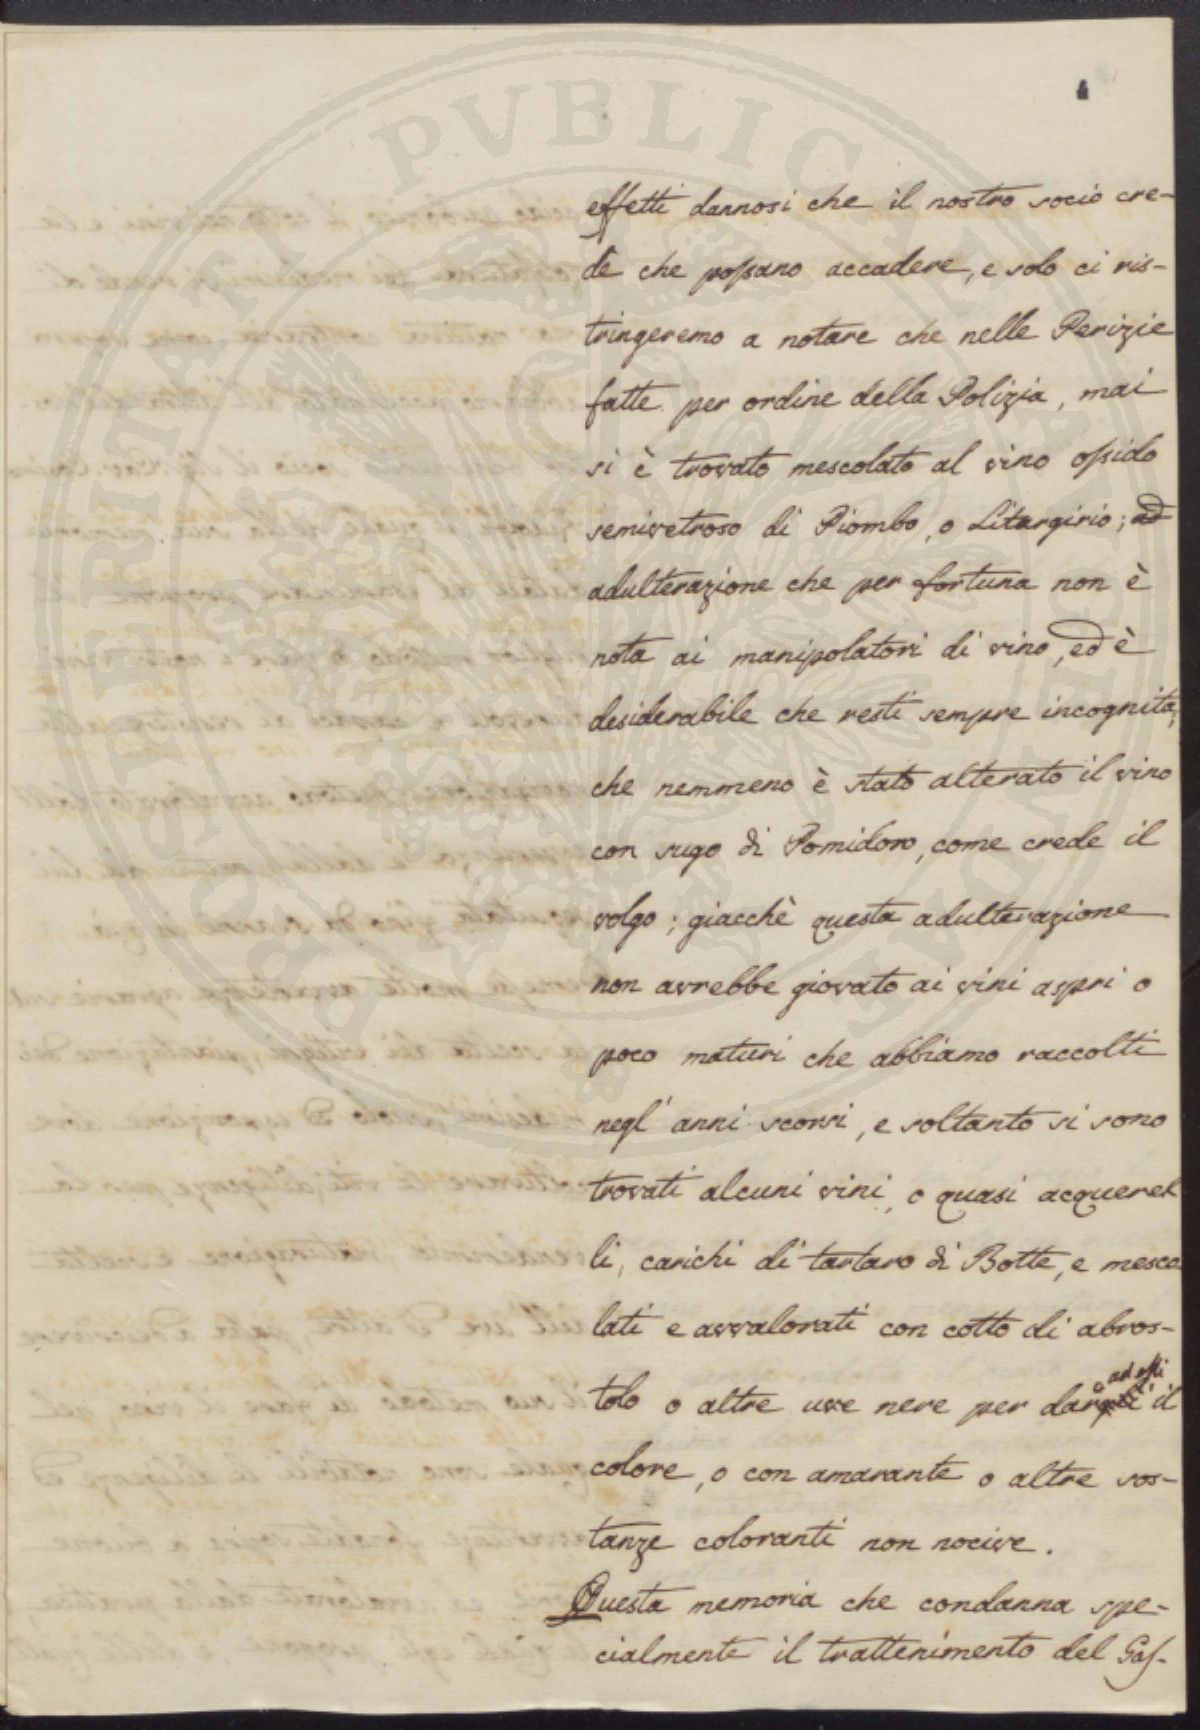 PROSPERITATI PUBLICAE AUGENDAE
effetti dannosi che il nostro socio cre-
de che possano accadere, e solo ci ris-
tringeremo a notare che nelle Perizie
fatte per ordine della Polizia, mai
si è trovato mescolato al vino ossido
semivetroso di Piombo, o Litargirio;
adulterazione che per fortuna non è
nota ai manipolatori di vino, ed è
desiderabile che resti sempre incognita;
che nemmeno è stato alterato il vino
con sugo di Pomidoro, come crede il
volgo; giacchè questa adulterazione
non avrebbe giovato ai vini aspri o
poco maturi che abbiamo raccolti
negl' anni scorsi, e soltanto si sono
trovati alcuni vini, o quasi acquerel
li, carichi di tartaro di Botte, e mesco
lati e avvalorati con cotto di abros-
tolo o altre uve nere per dare ad essi il
colore, o con amarante o altre sos-
tanze coloranti non nocive.
Questa memoria che condanna spe-
cialmente il trattenimento del Gas-